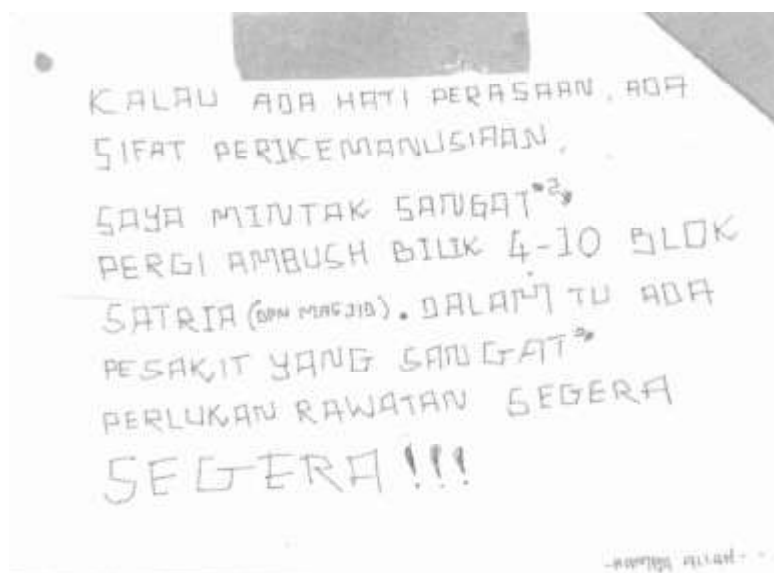 KALAU ADA HATI PERASAAN, ADA
SIFAT PERIKEMANUSIAAN,
SAYA MINTAK SANGAT"2"
PERGI AMBUSH BILIK 4-10 BLOK
SATRIA (DPN MASJID). DALAM TU ADA
PESAKIT YANG SANGAT"
PERLUKAN RAWATAN SEGERA
SEGERA!!!